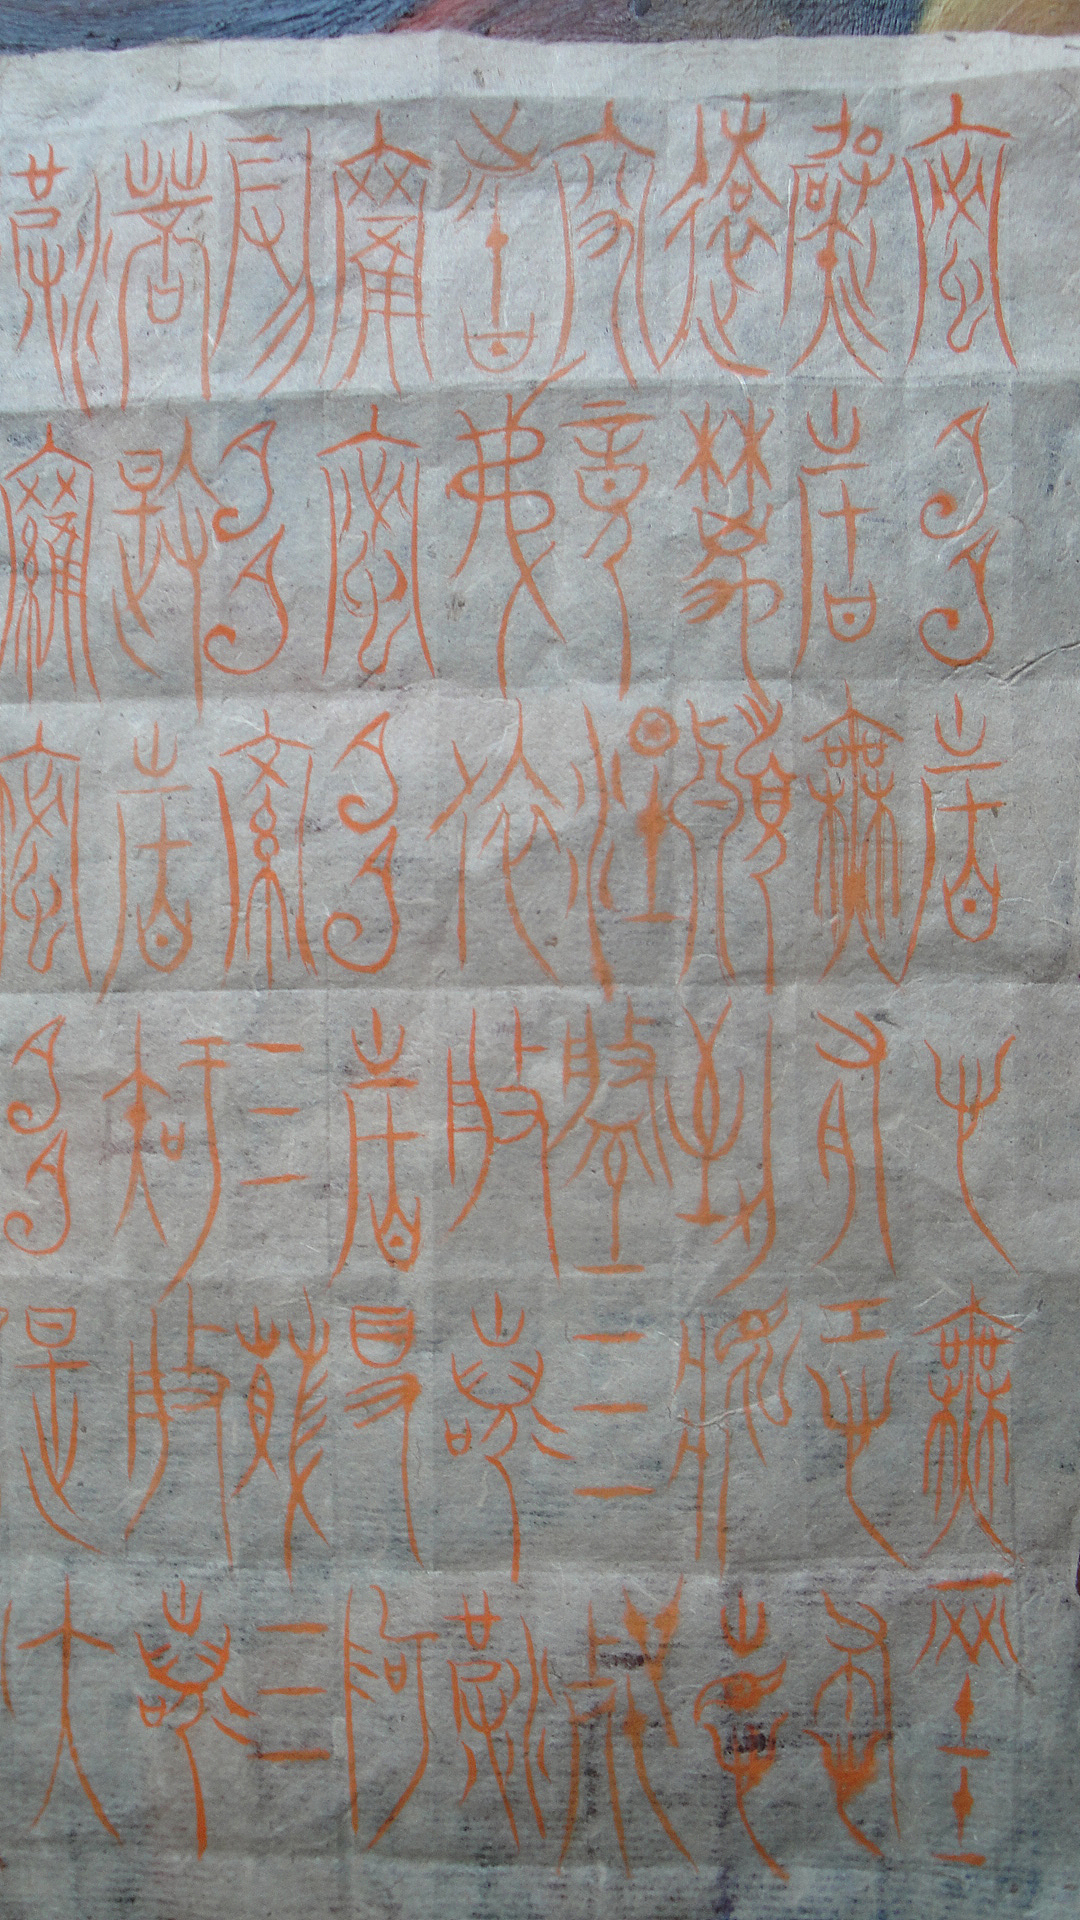 蜜多故心無罣
礙故無有恐怖
遠離顛倒夢想
究竟涅槃三世
諸佛依般若波
羅蜜多故得阿
耨多羅三藐三
菩提故知般若
波羅蜜多是大